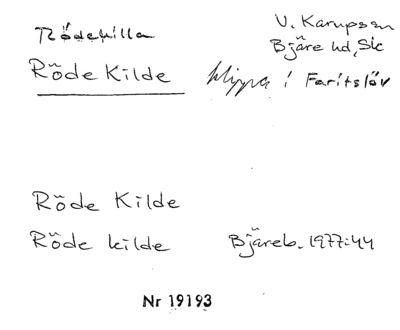 Rödekilla
V. Karupssn
Bjäre hd, Sk
Röde Kilde klippa i Faritslöv
Röde Kilde
Röde kilde Bjäreb. 1977:44
Nr 19193